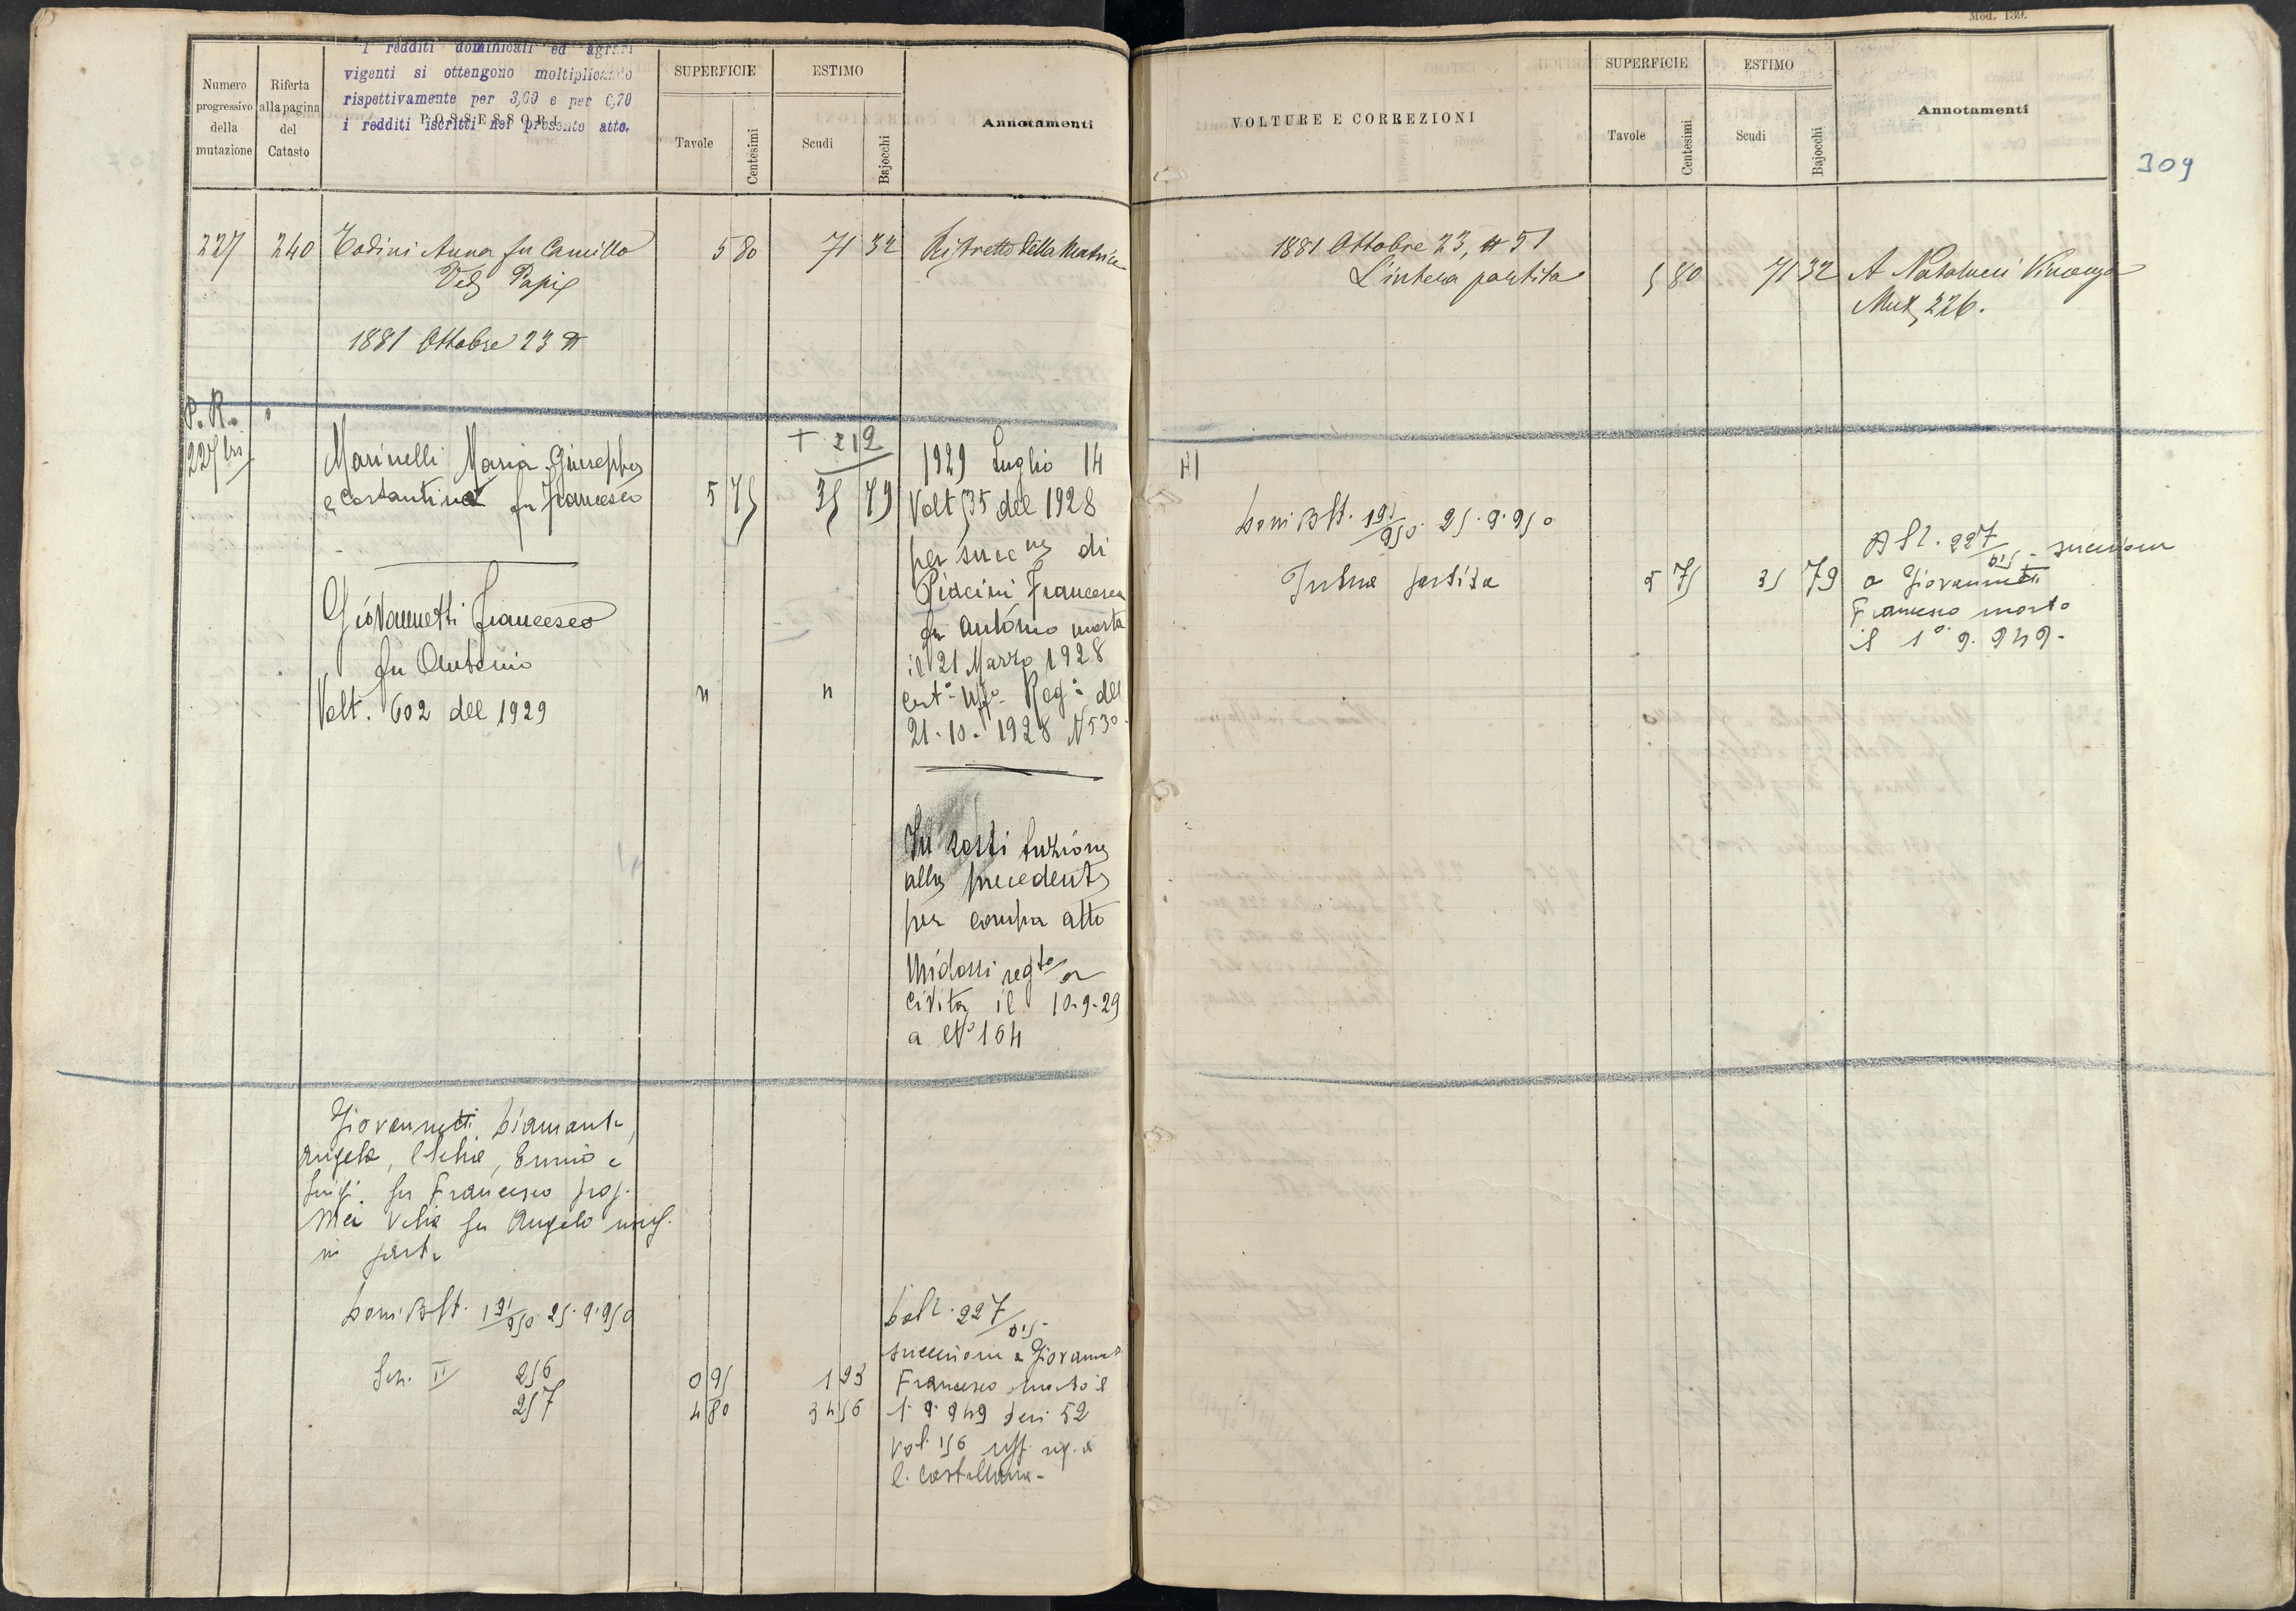 Mod. 139.
309
Numero progressivo della mutazione
Riferta alla pagina del Catasto
I redditi dominicali ed agrari
vigenti si ottengono moltiplicando
rispettivamente per 3,60 e per 0,70
i redditi iscritti nel presente atto.
POSSESSORI
SUPERFICIE
Tavole
Centesimi
ESTIMO
Scudi
Bajocchi
Annotamenti
227 240 Todini Anna fu Camillo 5 80 71 32 Ristretto della Matrice
Ved Papi
1881 Ottobre 23
P. R.
227 bis
Marinelli Maria Giuseppa
e Costantina fu Francesco 5 75 35 79
+ 212
1929 Luglio 14
Volt 535 del 1928
per succne di
Piacini Francesca
fu Antonio morta
il 21 Marzo 1928
Cert° Uff° Reg° del
21-10-1928 N 530
Giovannetti Francesco
fu Antonio
Volt. 602 del 1929 " "
In sostituzione
alla precedente
per compra atto
Midossi regto a
Civita il 10-9-29
a N° 164
Giovannetti Diamante,
Angela, Clelia, Ennio e
Luigi fu Francesco prop.
Mei Velia fu Angelo usuf.
in parte
191/950 25.9.950
Sez. II 256 0 95 1 23
257 4 80 34 56
Dall. 227/bis
successione a Giovannetti
Francesco morto il
1° 9 949 den 52
Vol. 156 uff. reg. a
C. Castellana-
VOLTURE E CORREZIONI
SUPERFICIE
Tavole
Centesimi
ESTIMO
Scudi
Bajocchi
Annotamenti
1881 Ottobre 23, # 51
L'intera partita 5 80 71 32 A Natalucci Vincenzo
Mut, 226.
191/950 25.9.950
Intera partita 5 75 35 79
All. 227/bis - successione
a Giovannetti
Francesco morto
il 1° 9. 949-